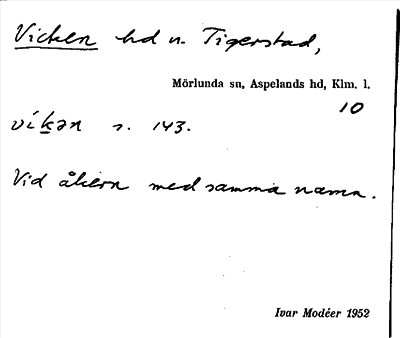 Vicken hd n. Tigerstad,
Mörlunda sn, Aspelands hd, Klm. l.
10
víkən s. 143.
Vid åkern med samma namn.
Ivar Modéer 1952